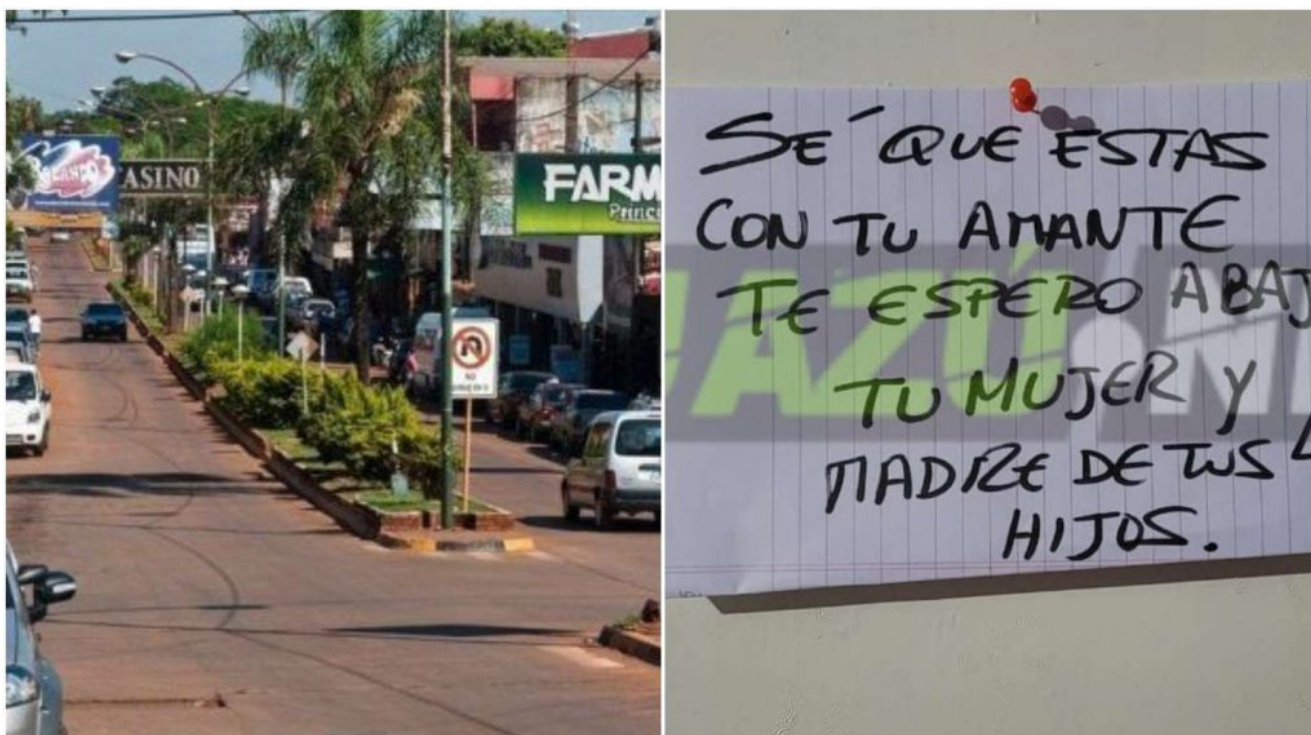 CASINO
FARM
Princi
NO
SÉ QUE ESTAS
CON TU AMANTE
TE ESPERO ABAJ
TU MUJER Y
MADRE DE TUS 4
HIJOS.